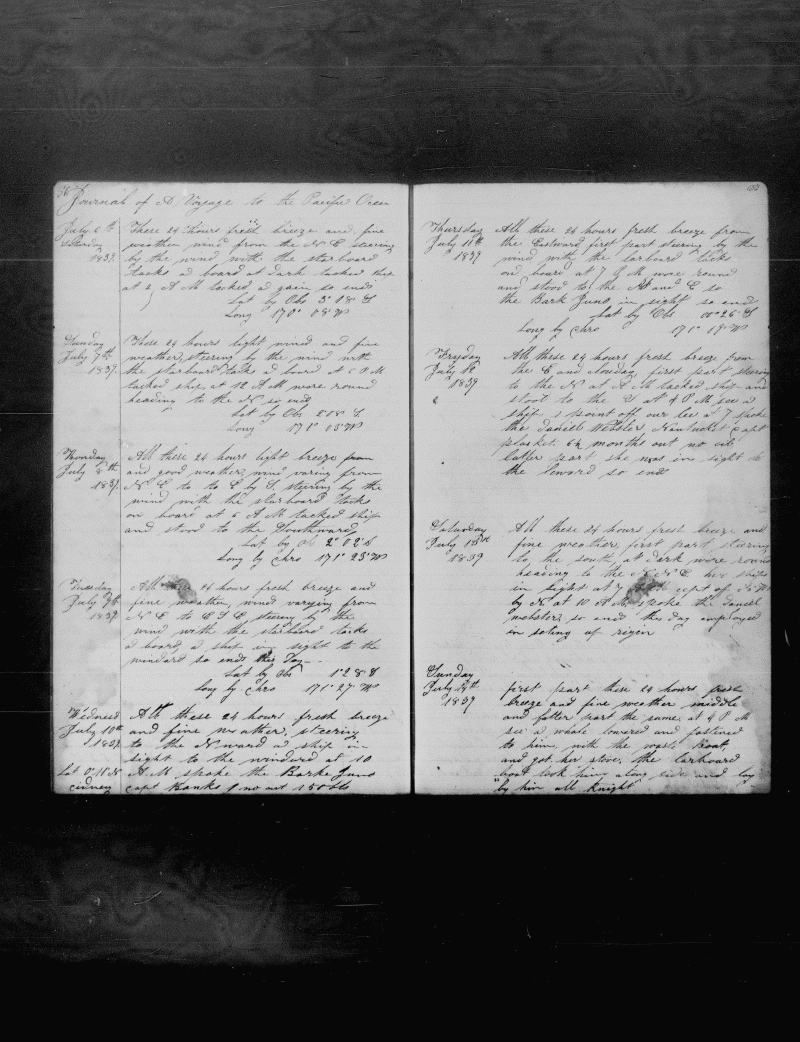 Journal of A Voyage to the Pacific Ocean
July 6th
Saturday
1839
These 24 hours fresh breeze and fine
weather wind from the N E steering
by the wind with the starboard
tacks a board at dark tacked ship
at 2 A M tacked a gain so ends
Lat by Obs 3° 18 S
Long 170° 08 W
Sunday
July 7th
1839
These 24 hours light wind and fine
weather, steering by the wind with
the starboard tacks a board at 6 P M
tacked ship at 12 A M wore round
heading to the N so ends
Lat by Obs 2 08 S
Long 171° 05 W
July 8th
1839
All these 24 hours light breeze from
and good weather, wind varing from
N E to E by S, steering by the
wind with the starboard tacks
on board at 6 A M tacked ship
and stood to the Southward
Lat by Ob 2° 02 S
Long by Chro 171° 25 W
Tuesday
July 9th
1839
All 24 hours fresh breeze and
fine weather, wind varying from
N E to E S E steering by the
wind with the starboard tacks
a board, a ship in sight to the
windard so ends this Day
Lat by Obs 1° 28 S
Long by Chro 171° 27 W
Wednesd
July 10th
1839
All these 24 hours fresh breeze
and fine weather, steering
to the N ward a ship in
sight to the windard at 10
Lat 0° 11 N
A M spoke the Barke Juno
capt Banks no out 150 bbs
Thursday
July 11th
1839
All these 24 hours fresh breeze from
the Eastward, first part steering by the
wind with the larboard tacks
on board at 7 P M wore round
and stood to the N and E so
the Bark Juno in sight so ends
Lat by Obs 00° 26 S
Long by Chro 171° 19 W
Fryday
July 12
1839
All these 24 hours fresh breeze from
the E and first part steering
to the N at A M tacked ship and
stood to the S at 4 P M see a
ship 1 point off our lee a 7 spoke
the Daniell Webster, Nantucket Capt
plasket. months out no oil
latter part she was in sight to
the leward so ends
Saturday
July 13
1839
All these 24 hours fresh breeze and
fine weather, first part steering
to the south, at dark wore round
heading to the N N E two ships
in sight at 7
by N. at 10 A M spoke the Daniell
webster, so ends this day employed
in seting up rigen
Sunday
July 14th
1839
first part these 24 hours fresh
breeze and fine weather middle
and latter part the same, at 4 P M
see a whale lowered and fastined
to him, with the wast boat,
and got her stove, the larboard
boat took him along side and lay
by him all knight